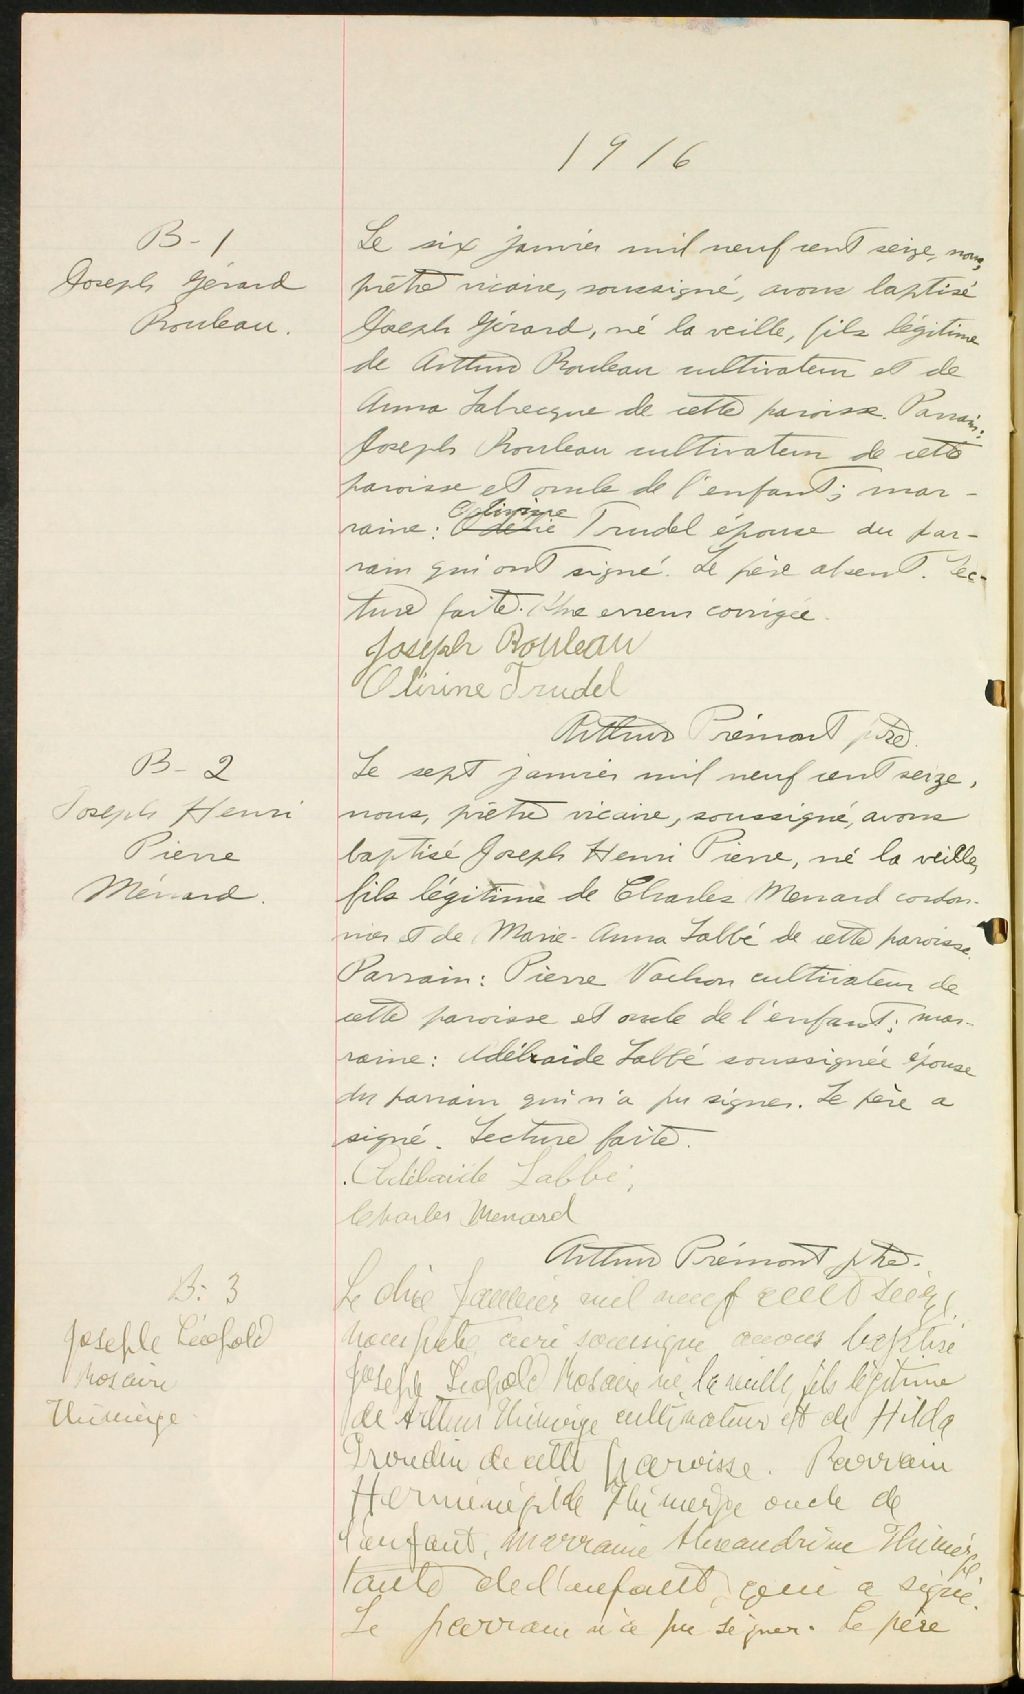 1916
B-1
Joseph Gérard
Rouleau.
Le six janvier mil neuf cent seize, nous,
prêtre vicaire, soussigné, avons baptisé
Joseph Gérard, né la veille, fils légitime
de Arthur Rouleau cultivateur et de
Anna Labrecque de cette paroisse. Parrain:
Joseph Rouleau cultivateur de cette
paroisse et oncle de l'enfant; mar-
Olivine
raine: Trudel épouse du par-
rain qui ont signé. Le père absent. Lec-
ture faite. Une erreur corrigée.
Joseph Rouleau
Olivine Trudel
Arthur Prémont ptre.
B-2
Joseph Henri
Pierre
Ménard.
Le sept janvier mil neuf cent seize,
nous, prêtre vicaire, soussigné, avons
baptisé Joseph Henri Pierre, né la veille,
fils légitime de Charles Menard cordon-
nier et de Marie-Anna Labbé de cette paroisse.
Parrain: Pierre Vachon cultivateur de
cette paroisse et oncle de l'enfant; mar-
raine: Adélaide Labbé soussignée épouse
du parrain qui n'a pu signer. Le père a
signé. Lecture faite.
Adélaide Labbé,
Charles Menard
Arthur Prémont ptre.
B: 3
Joseph Léopold
Rosaire
Thivierge
Le dix Janvier mil neuf cent seize,
nous prêtre curé soussigné avons baptisé
Joseph Léopold Rosaire né la veille, fils légitime
de Arthur Thivierge cultivateur et de Hilda
Proudin de cette paroisse. Parrain
Herménégilde Thivierge oncle de
l'enfant, marraine Alexandrine Thivierge
tante de l'enfant, qui a signé.
Le parrain n'a pu signer. Le père